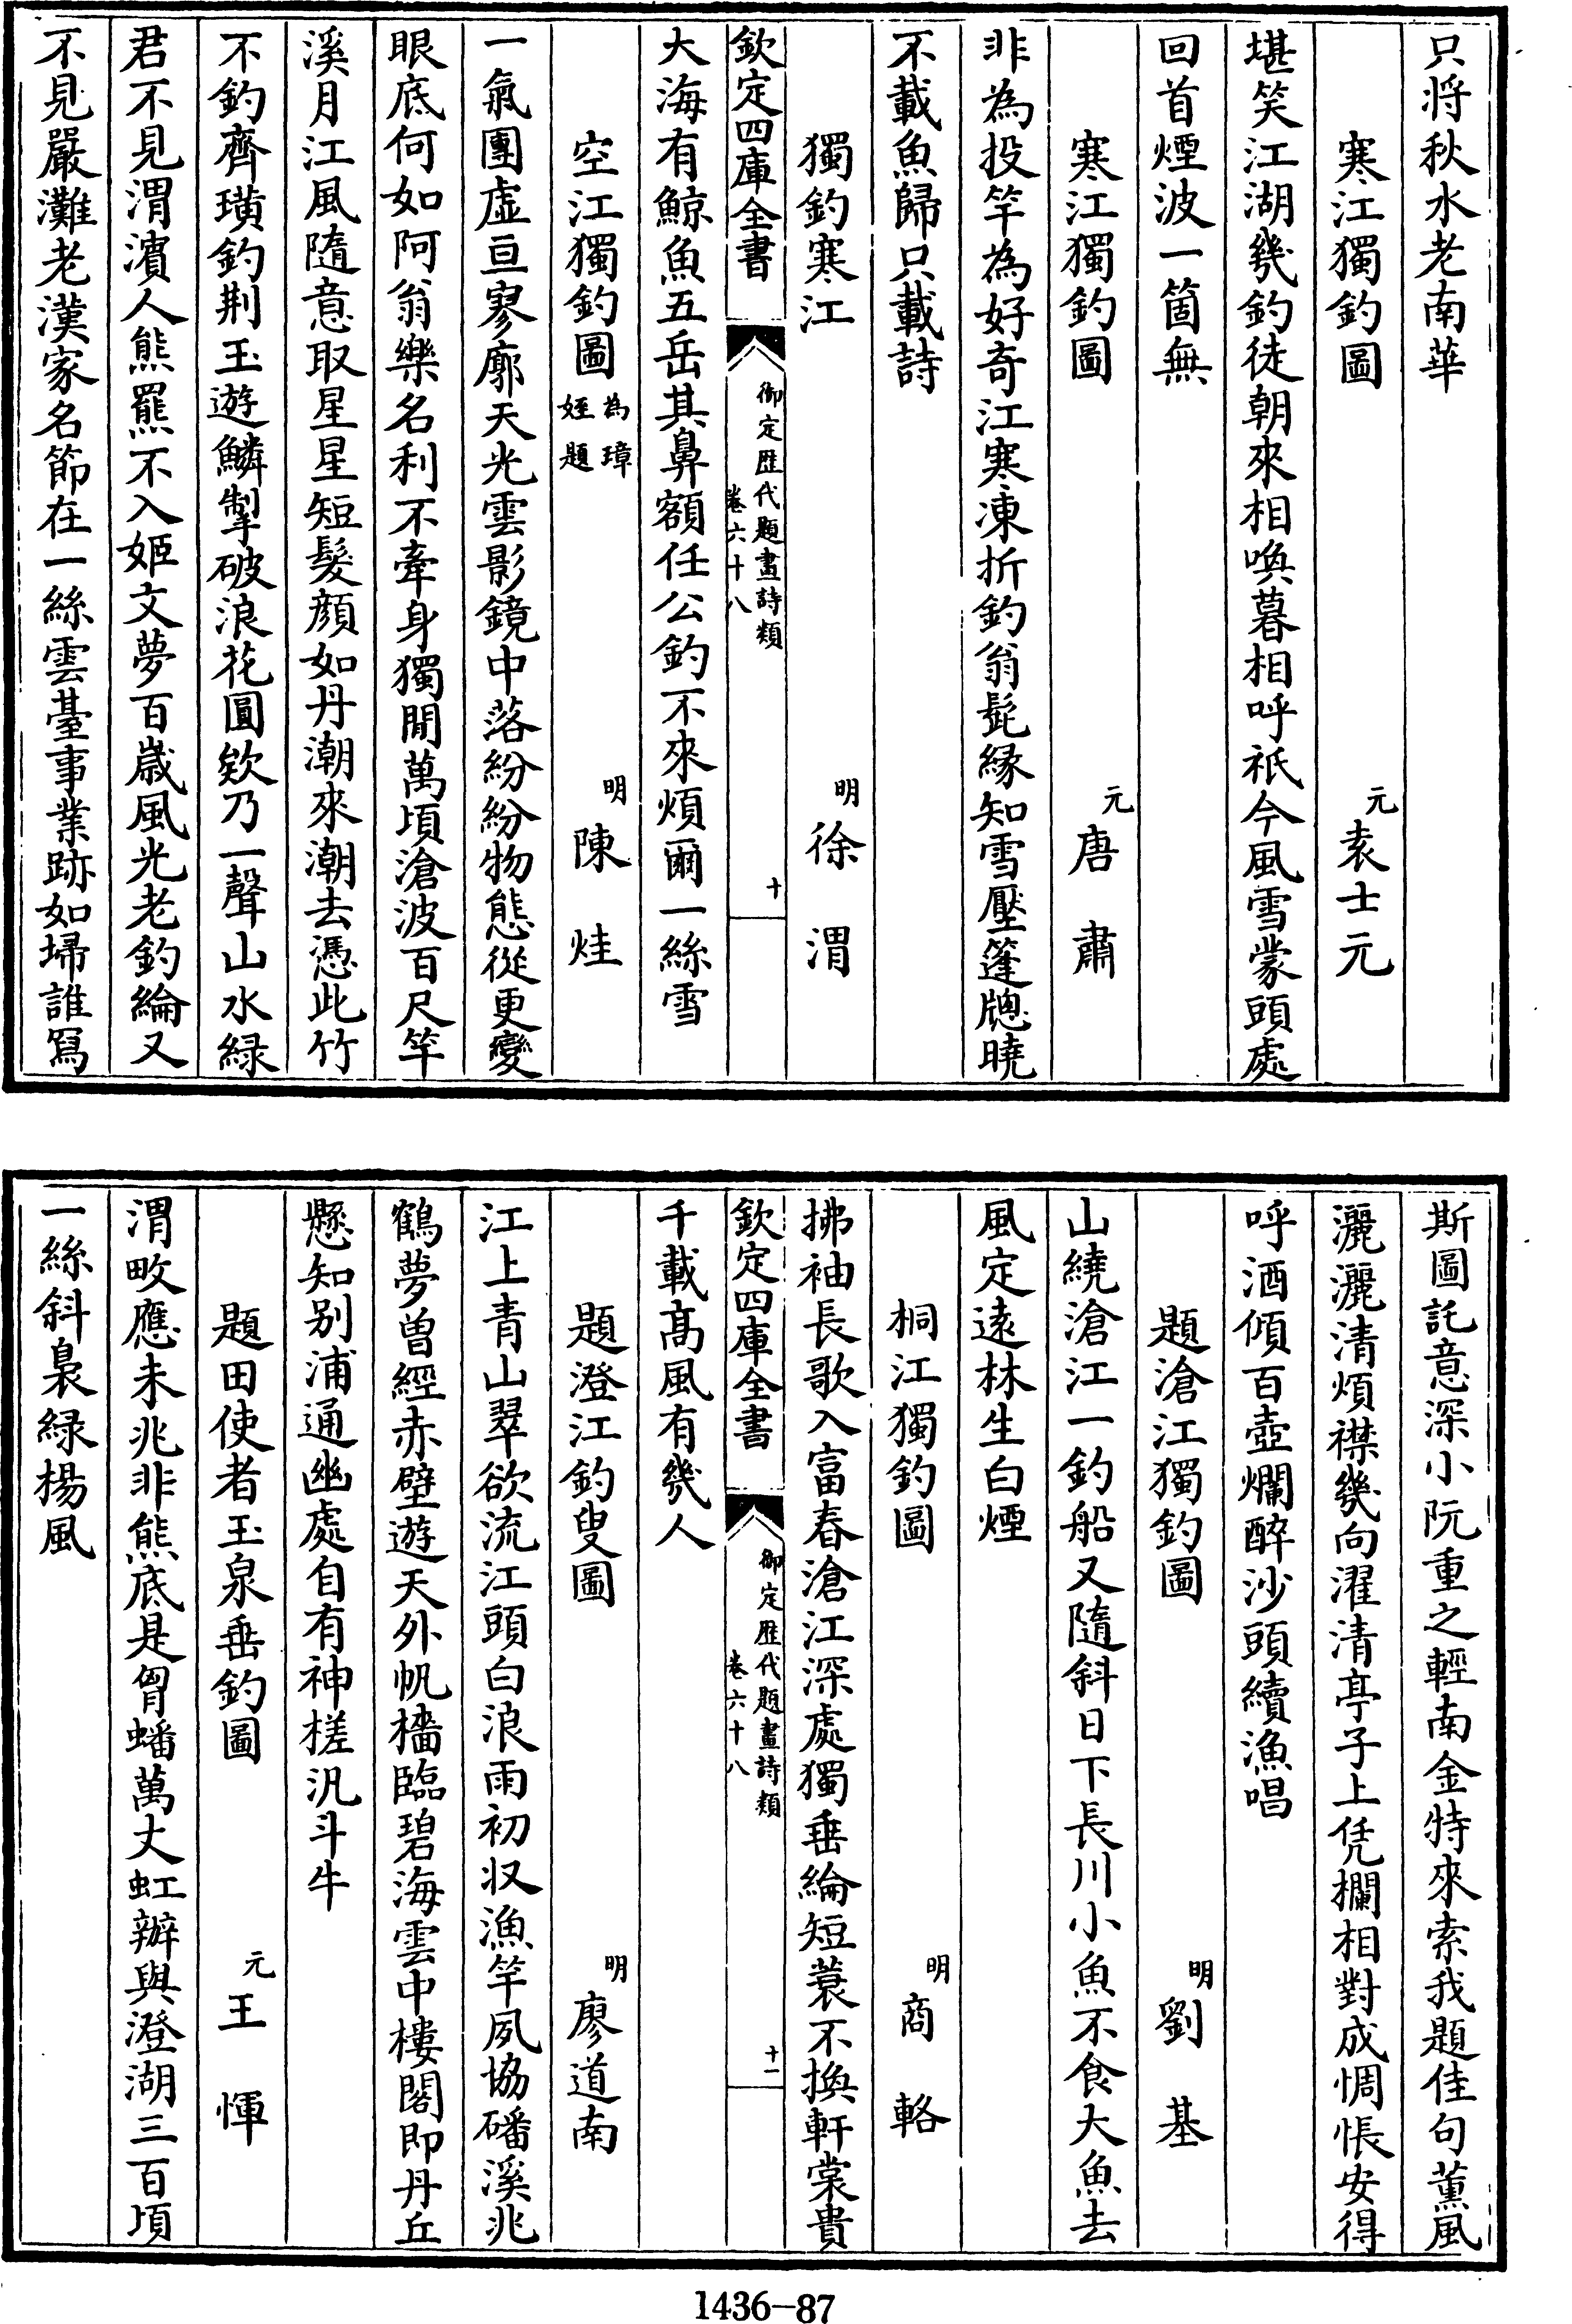 只將秋水老南華
寒江獨釣圖
元袁士元
堪笑江湖幾釣徒朝來相喚暮相呼祇今風雪蒙頭處
回首煙波一箇無
寒江獨釣圖
元唐肅
非為投竿為好奇江寒凍折釣翁髭縁知雪壓篷牕曉
不載魚歸只載詩
獨釣寒江
明徐渭
欽定四庫全書
御定歴代題畫詩類
卷六十八
十
大海有鯨魚五岳其鼻額任公釣不來煩爾一絲雪
空江獨釣圖
為璋
姪題
明陳烓
一氣團虛亘寥廓天光雲影鏡中落紛紛物態從更變
眼底何如阿翁樂名利不牽身獨閒萬頃滄波百尺竿
溪月江風隨意取星星短髮顔如丹潮來潮去憑此竹
不釣齊璜釣荆玉遊鱗掣破浪花圓欸乃一聲山水緑
君不見渭濱人熊羆不入姬文夢百歳風光老釣綸又
不見嚴灘老漢家名節在一絲雲臺事業跡如埽誰冩
斯圖託意深小阮重之輕南金特來索我題佳句薰風
灑灑清煩襟幾向濯清亭子上凭欄相對成惆悵安得
呼酒傾百壺爛醉沙頭續漁唱
題滄江獨釣圖
明劉基
山繞滄江一釣船又隨斜日下長川小魚不食大魚去
風定遠林生白煙
桐江獨釣圖
明商輅
拂袖長歌入富春滄江深處獨垂綸短蓑不換軒裳貴
欽定四庫全書
御定歴代題畫詩類
卷六十八
十一
千載髙風有幾人
題澄江釣叟圖
明廖道南
江上青山翠欲流江頭白浪雨初收漁竿夙協磻溪兆
鶴夢曽經赤壁遊天外帆檣臨碧海雲中樓閣即丹丘
懸知别浦通幽處自有神槎汎斗牛
題田使者玉泉垂釣圖
元王惲
渭畋應未兆非熊底是胷蟠萬丈虹辦與澄湖三百頃
一絲斜裊緑楊風
1436-87